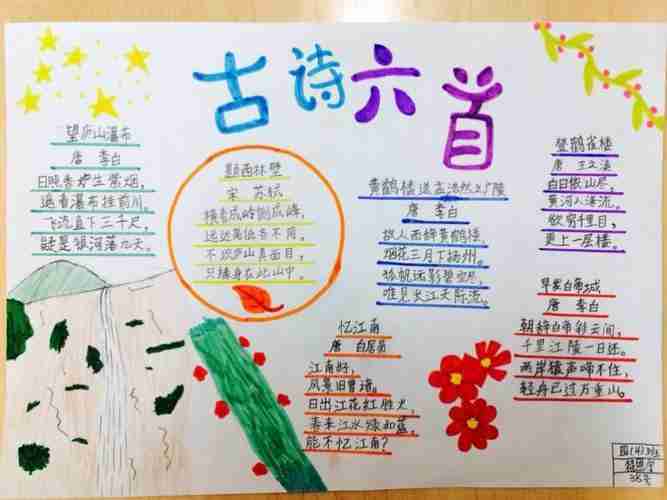 古诗六首
望庐山瀑布
唐 李白
日照香炉生紫烟,
遥看瀑布挂前川。
飞流直下三千尺,
疑是银河落九天。
题西林壁
宋 苏轼
横看成岭侧成峰,
远近高低各不同。
不识庐山真面目,
只缘身在此山中。
黄鹤楼送孟浩然之广陵
唐 李白
故人西辞黄鹤楼,
烟花三月下扬州。
孤帆远影碧空尽,
唯见长江天际流。
登鹤雀楼
唐 王之涣
白日依山尽,
黄河入海流。
欲穷千里目,
更上一层楼。
忆江南
唐 白居易
江南好,
风景旧曾谙。
日出江花红胜火,
春来江水绿如蓝。
能不忆江南?
早发白帝城
唐 李白
朝辞白帝彩云间,
千里江陵一日还。
两岸猿声啼不住,
轻舟已过万重山。
38号